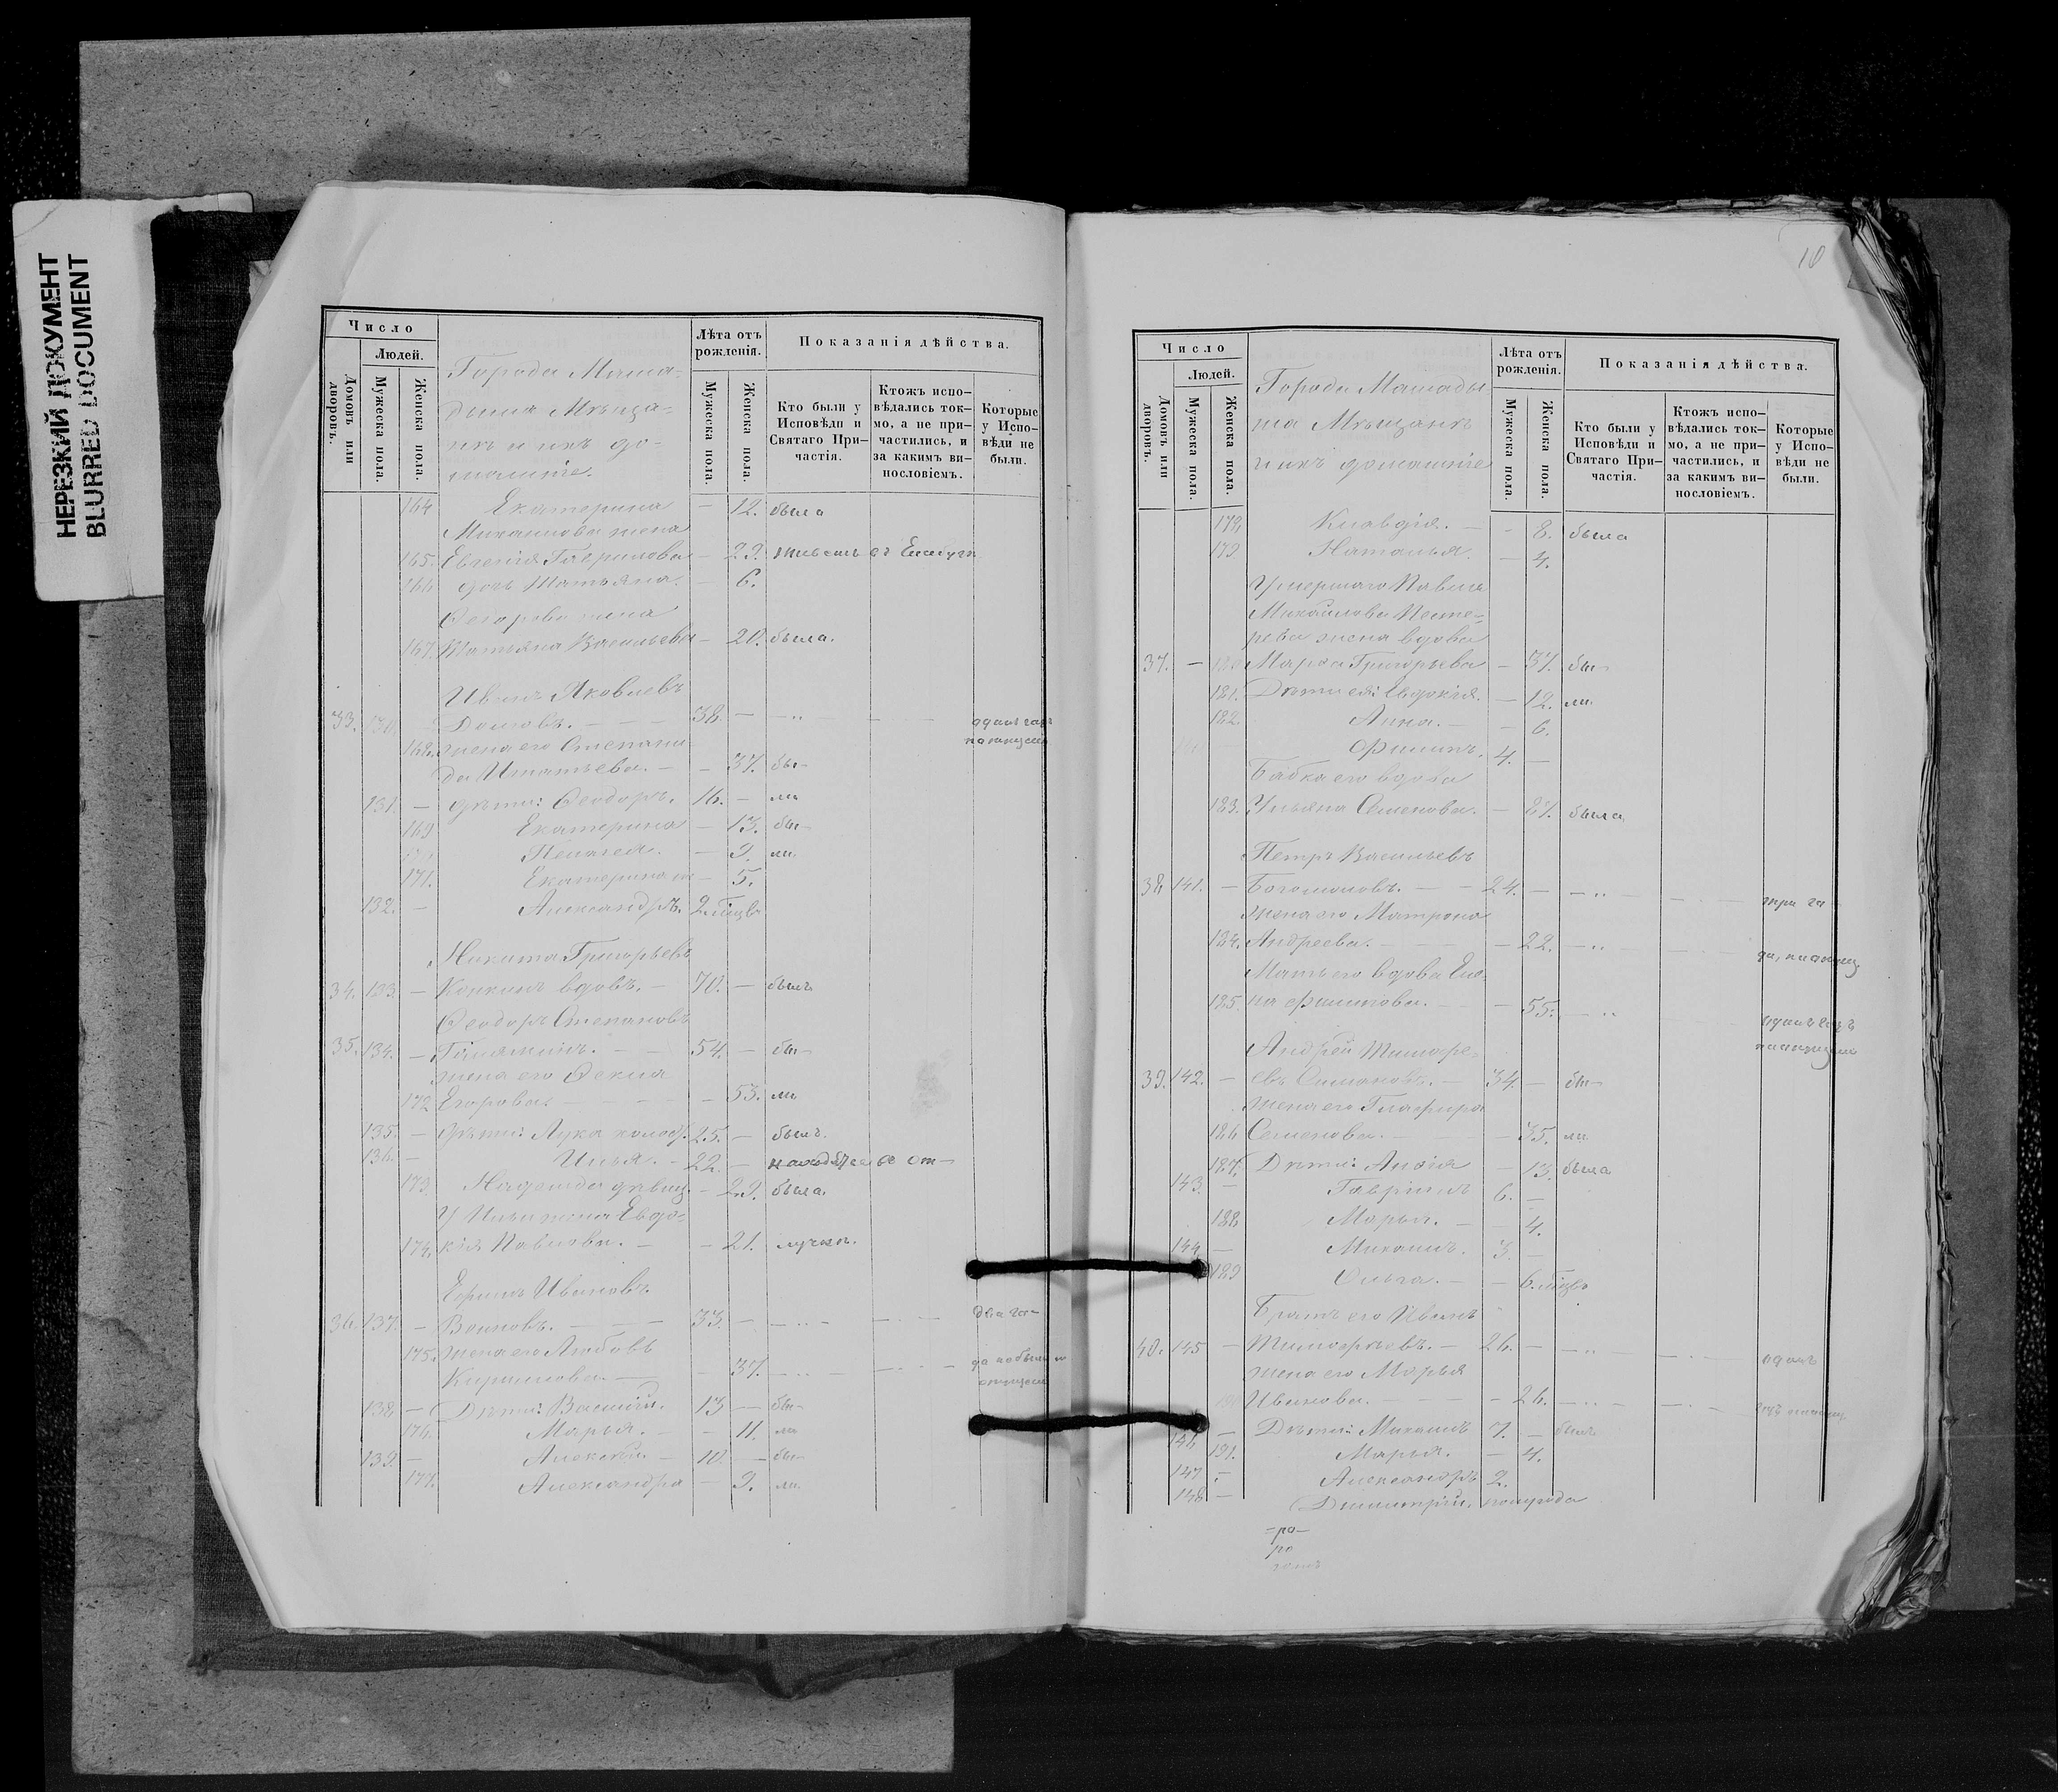 НЕРЕЗКИЙ ДОКУМЕНТ
BLURRED DOCUMENT
Число
Людей.
Домовъ или дворовъ.
Мужеска пола.
Женска пола.
Города Мама-
дыша Мѣща-
не и ихъ до-
машніе.
Лѣта отъ рожденія.
Мужеска пола.
Женска пола.
Показанія дѣйства.
Кто были у Исповѣди и Святаго При-частія.
Ктожъ испо-вѣдались ток-мо, а не при-частились, и за какимъ ви-нословіемъ.
Которые у Испо-вѣди не были.
164 Екатерина — 12. была
Михаилова жена
165. Евгенія Гаврилова — 29. живетъ въ Елабугѣ
166 дочь Татьяна. — 6.
Ѳедорова жена
167. Татьяна Васильева — 20. была.
Иванъ Яковлевъ
33. 130. Домовъ. — 38. — одинъ годъ
168. жена его Степани- по опущен.
да Игнатьева. — 37. бы-
131. — дѣти: Ѳеодоръ. 16. — ли
169 Екатерина — 13. бы-
170 Пелагея. — 9. ли.
171. Екатерина — 5.
132. — Александръ. 2.
Никита Григорьевъ
34. 133. — Конкинъ вдовъ. — 70. — былъ
Ѳеодоръ Степановъ
35. 134. — 54. — бы-
жена его Ѳекла
172 Егорова. — 53. ли
135. — дѣти: Лука холос. 25. — былъ.
136. — Илья. — 22. — находится въ от-
173. Надежда дѣвиц. — 29. была.
У Ильи жена Евдо-
174. кія Павлова. — 21. лучкѣ.
Ефимъ Ивановъ
36. 137. — Воиновъ. 33. — два го-
175. жена его Любовь
Кирилова. — 37. да не были по
опущен.
138. — Дѣти: Василій. 13 — бы-
176. Марья. — 11. ли
139. — Алексѣй. — 10. — бы-
177. Александра — 9. ли.
10
Число
Людей.
Домовъ или дворовъ.
Мужеска пола.
Женска пола.
Города Мамады-
ша Мѣщане
и ихъ домашніе
Лѣта отъ рожденія.
Мужеска пола.
Женска пола.
Показанія дѣйства.
Кто были у Исповѣди и Святаго При-частія.
Ктожъ испо-вѣдались ток-мо, а не при-частились, и за какимъ ви-нословіемъ.
Которые у Испо-вѣди не были.
178, Клавдія. — 8. была
179 Наталья. — 4.
Умершаго Павла
Михайлова Песте-
рева жена вдова
37. — 180 Марѳа Григорьева — 37. бы-
181. Дѣти ея: Евдокія. — 12. ли.
182. Анна. — 6.
Филипъ. 4. —
Бабка его вдова
183. Ульяна Семенова. — 81. была,
Петръ Васильевъ
38, 141. — Богомоловъ. — 24. — три го-
жена его Матрона
184. Андреева. — 22. да, по опущ.
Мать его вдова Еле-
185. на Филипова. — 55. одинъ годъ
по опущен.
Андрей Тимофе-
39. 142. — евъ Симаковъ. — 34. — бы-
жена его Глафира
186 Семенова. — 35. ли
187. Дѣти: Анѳія — 13. была
143. — Гавріилъ 6. —
188 Марья. — 4.
144 — Михаилъ. 3. —
189 Ольга. — 6.
Братъ его Иванъ
40. 145 — Тимофѣевъ. — 26. — одинъ
жена его Марья
190 Иванова. — 26. годъ опущен.
146 — Дѣти: Михаилъ 7. — былъ
191. Марья. — 4.
147 — Александръ 2.
148 — Димитрій, полугода
=ра-
ра